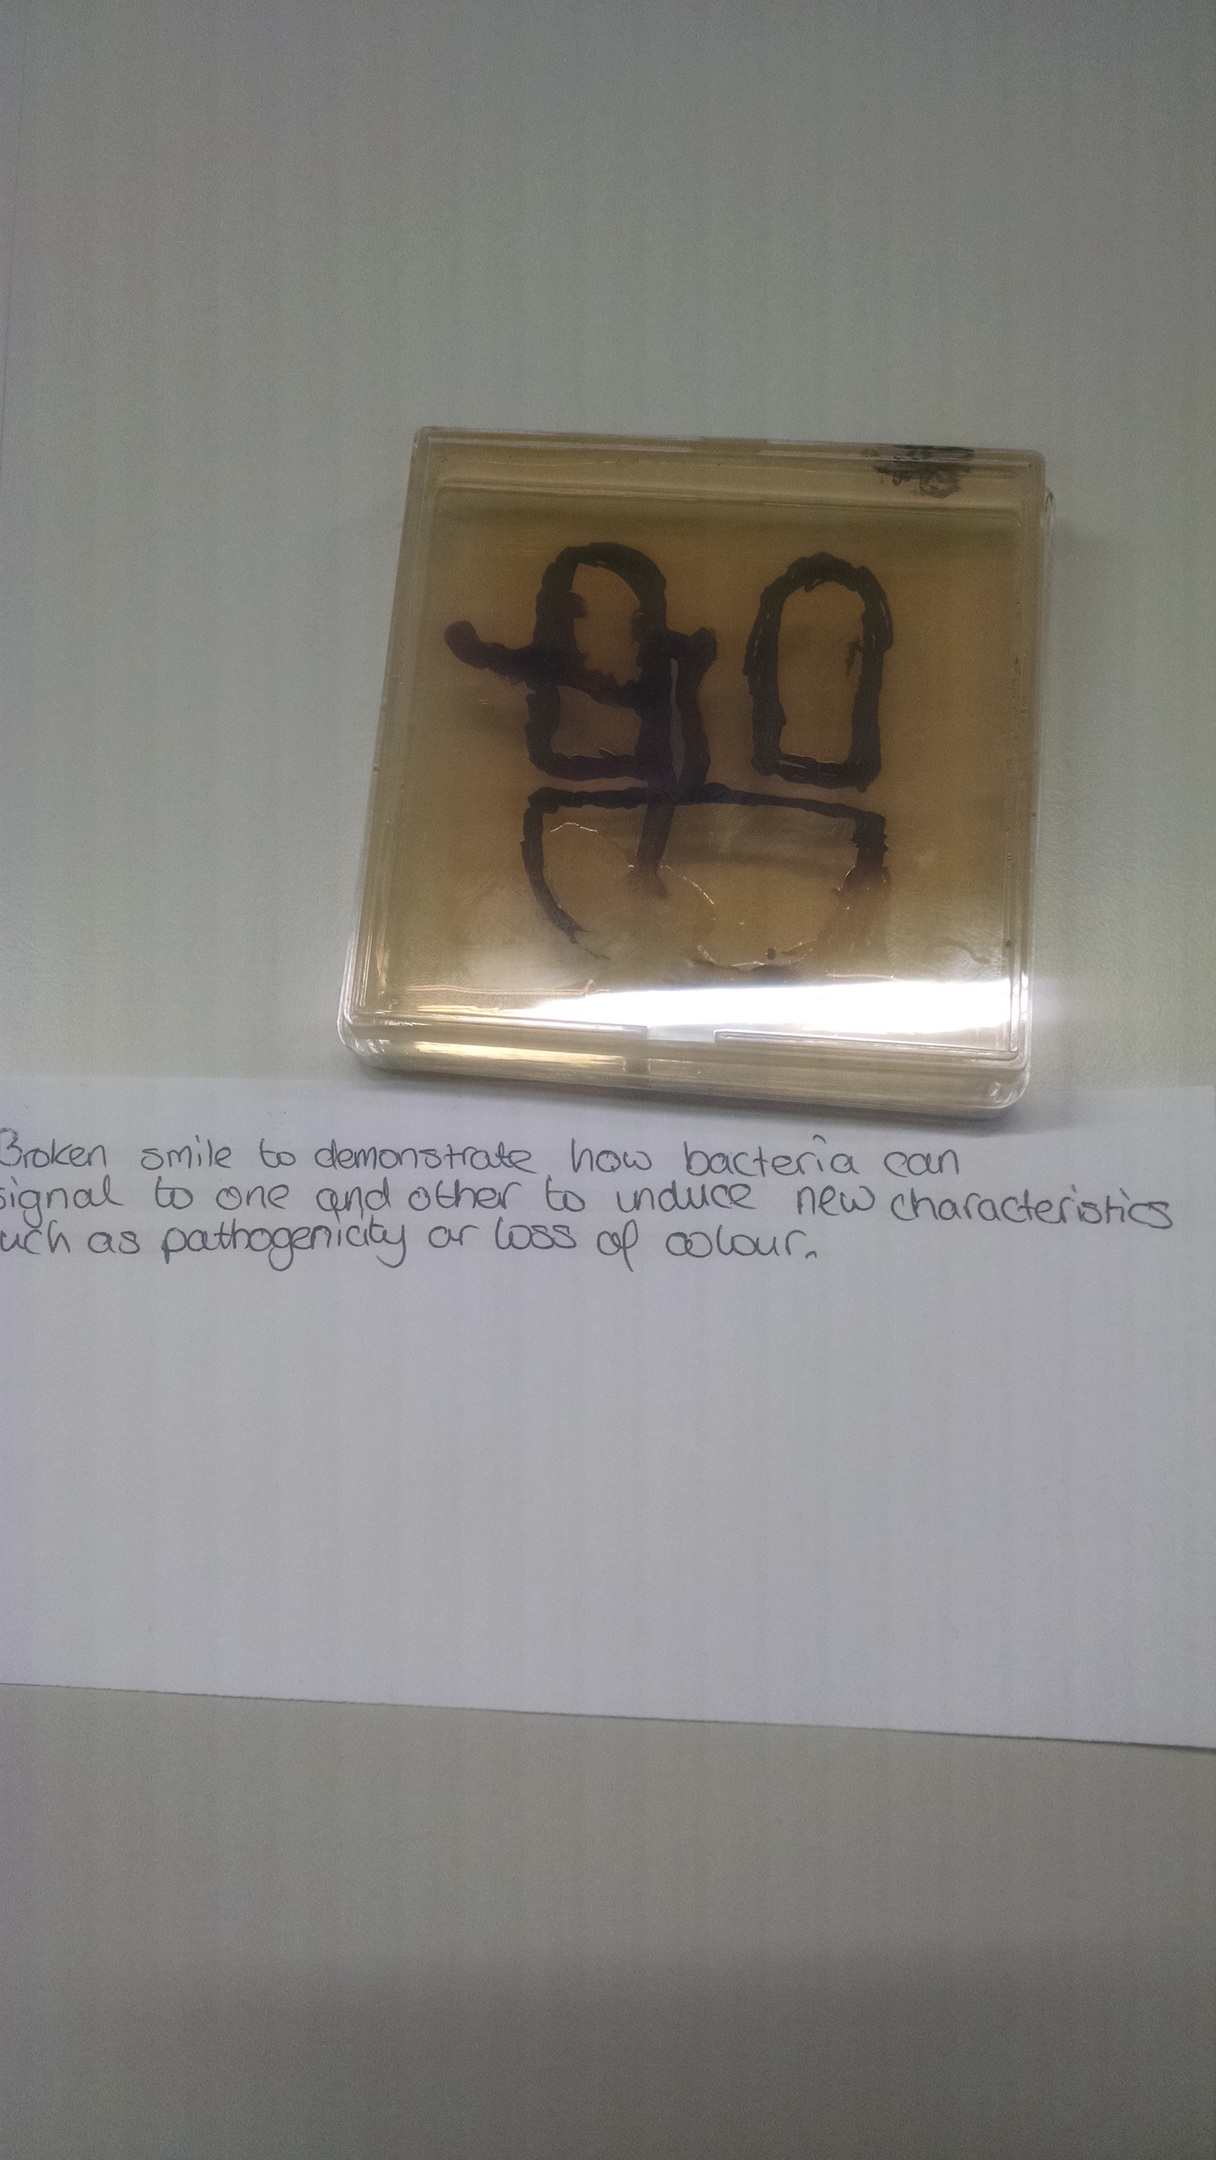 Broken smile to demonstrate how bacteria can
signal to one and other to induce new characteristics
uch as pathogenicity or loss of colour.